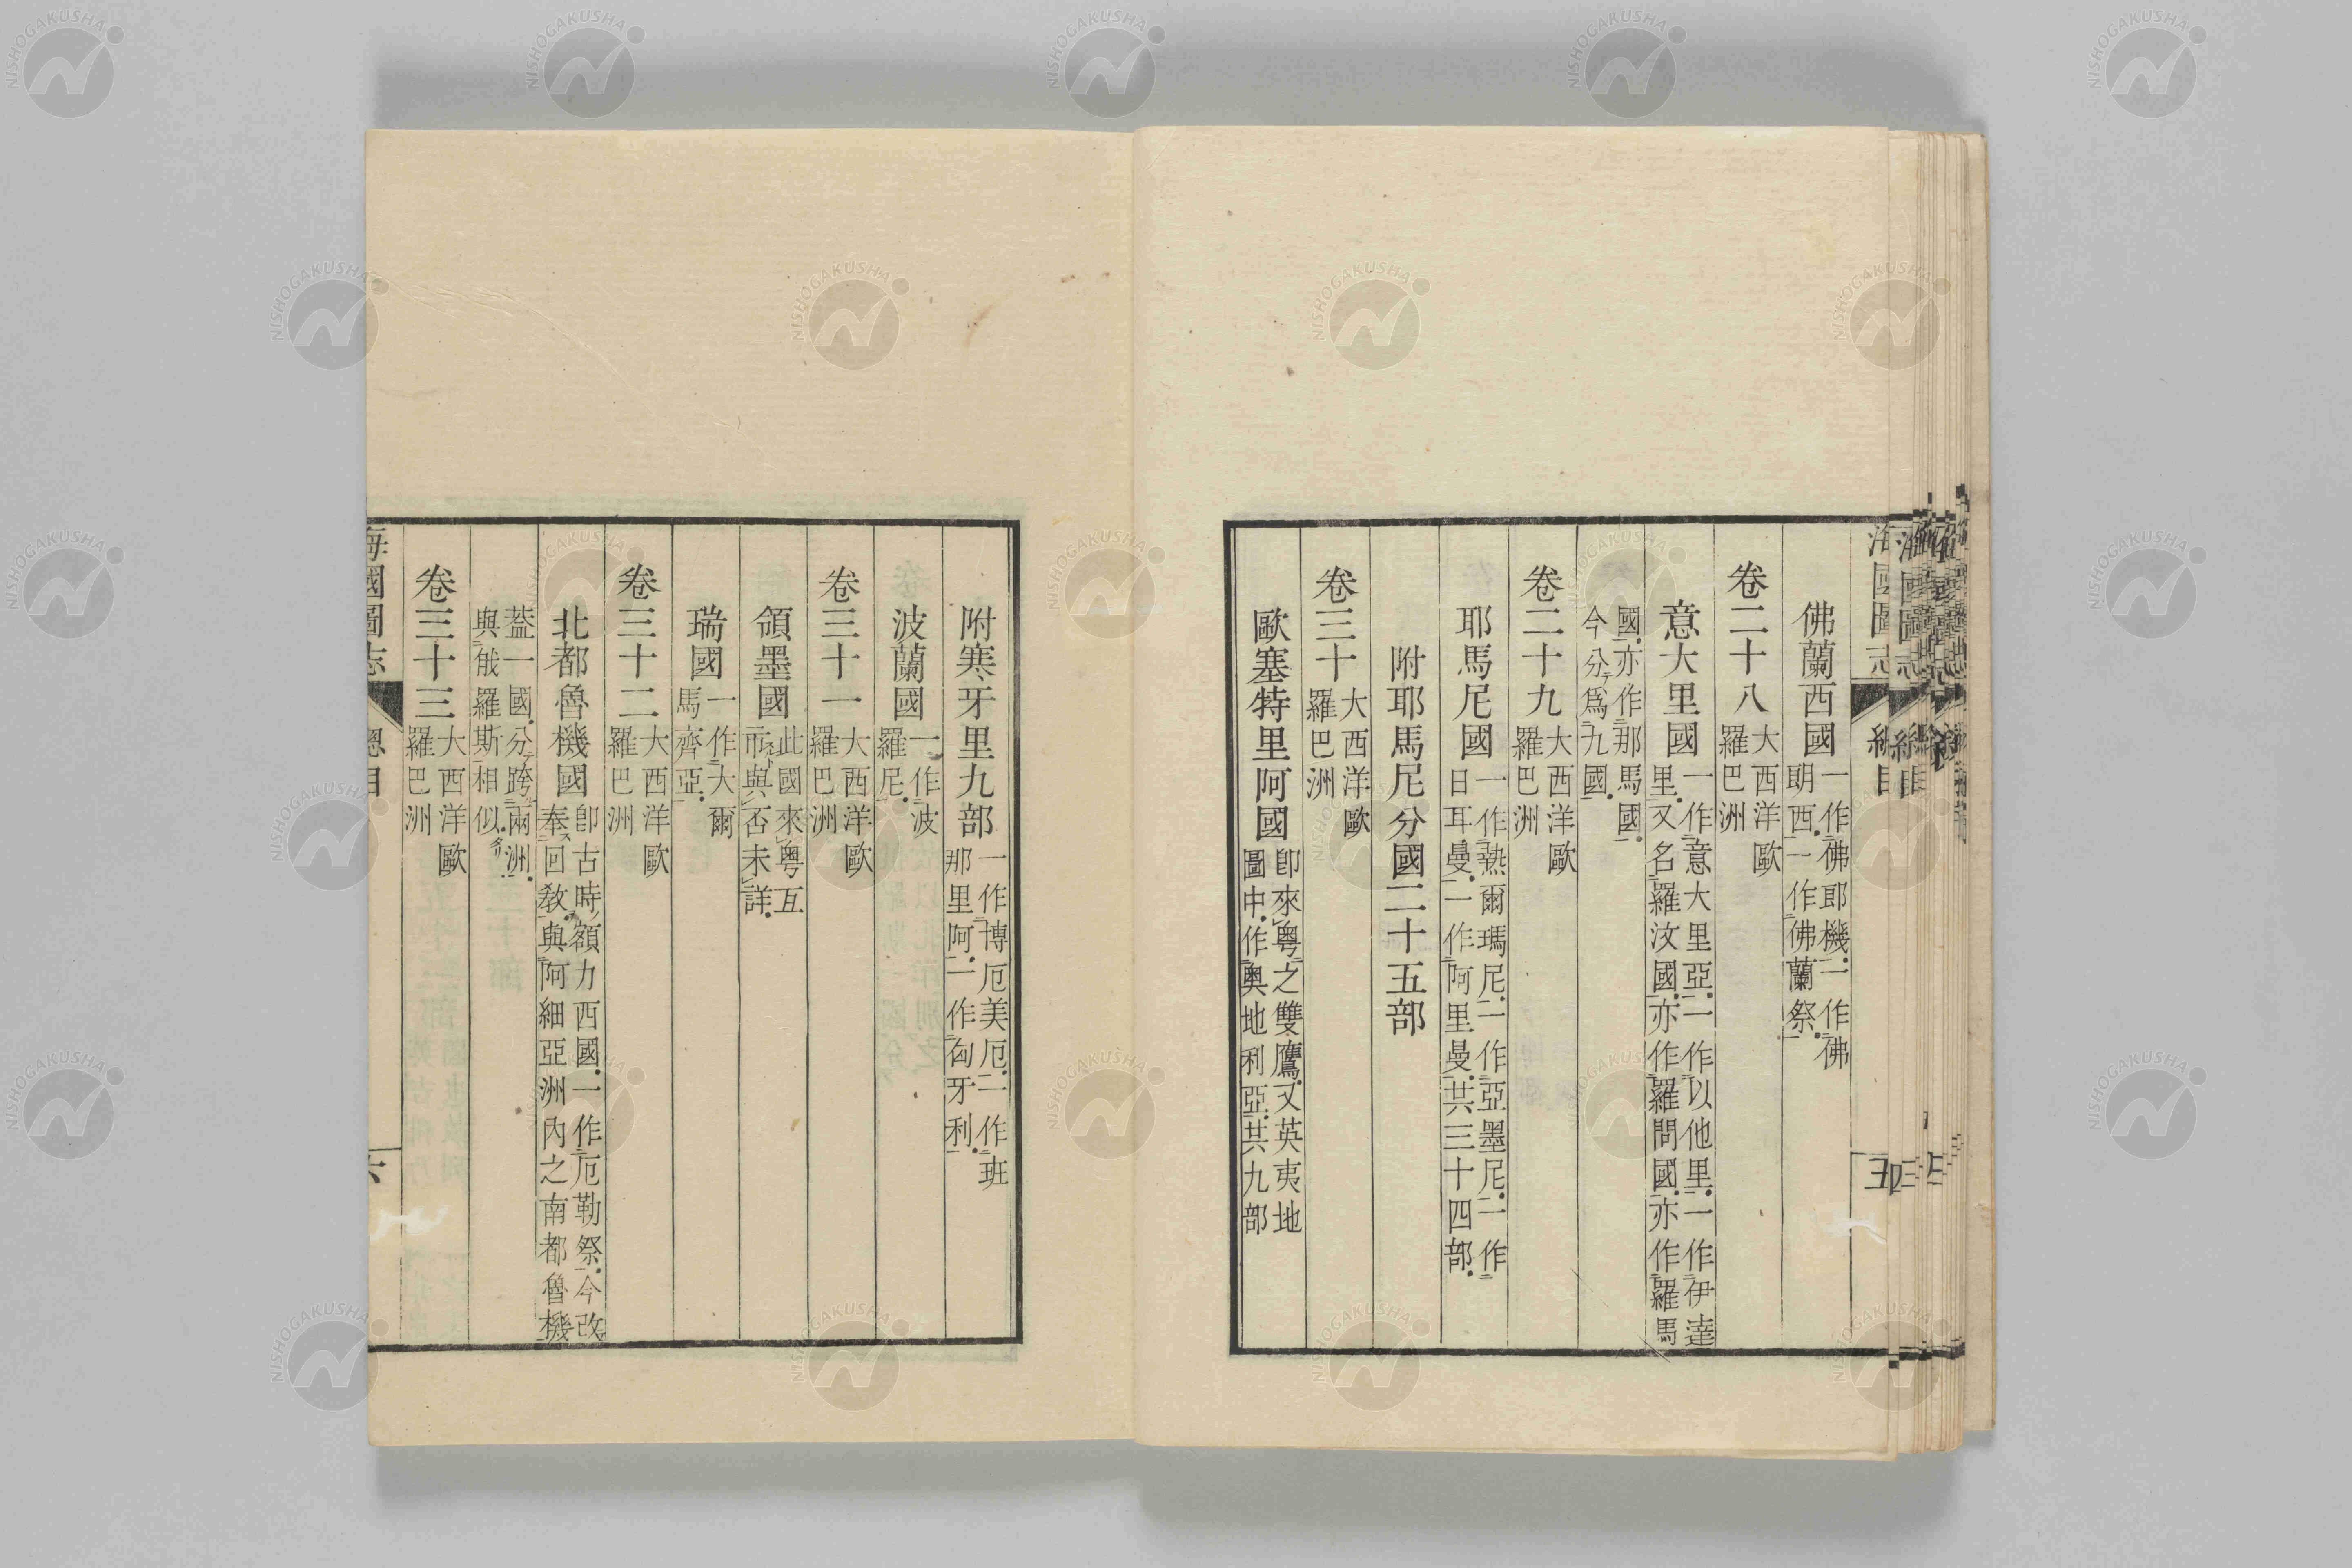 海國圖志 總目 五
佛蘭西國 一作佛耶機一作佛
朗西一作佛蘭祭
卷二十八 大西洋歐
羅巴洲
意大里國 一作意大里亞一作以他里一作伊達
里又名羅汶國亦作羅問國亦作羅馬
國亦作那馬國
今分爲九國
卷二十九 大西洋歐
羅巴洲
耶馬尼國 一作熱爾瑪尼一作亞墨尼一作
日耳曼一作阿里曼共三十四部
附耶馬尼分國二十五部
卷三十 大西洋歐
羅巴洲
歐塞特里阿國 卽來粤之雙鷹又英夷地
圖中作奧地利亞共九部
附寒牙里九部 一作博厄美厄一作班
那里阿一作匈牙利
波蘭國 一作波
羅尼
卷三十一 大西洋歐
羅巴洲
領墨國 此國來粤互
市與否未詳
瑞國 一作大爾
馬齊亞
卷三十二 大西洋歐
羅巴洲
北都魯機國 卽古時額力西國一作厄勒祭今改
奉回敎與阿細亞洲內之南都魯機
葢一國分跨兩洲
與俄羅斯相似
卷三十三 大西洋歐
羅巴洲
海國圖志 總目 六
NISHOGAKUSHA